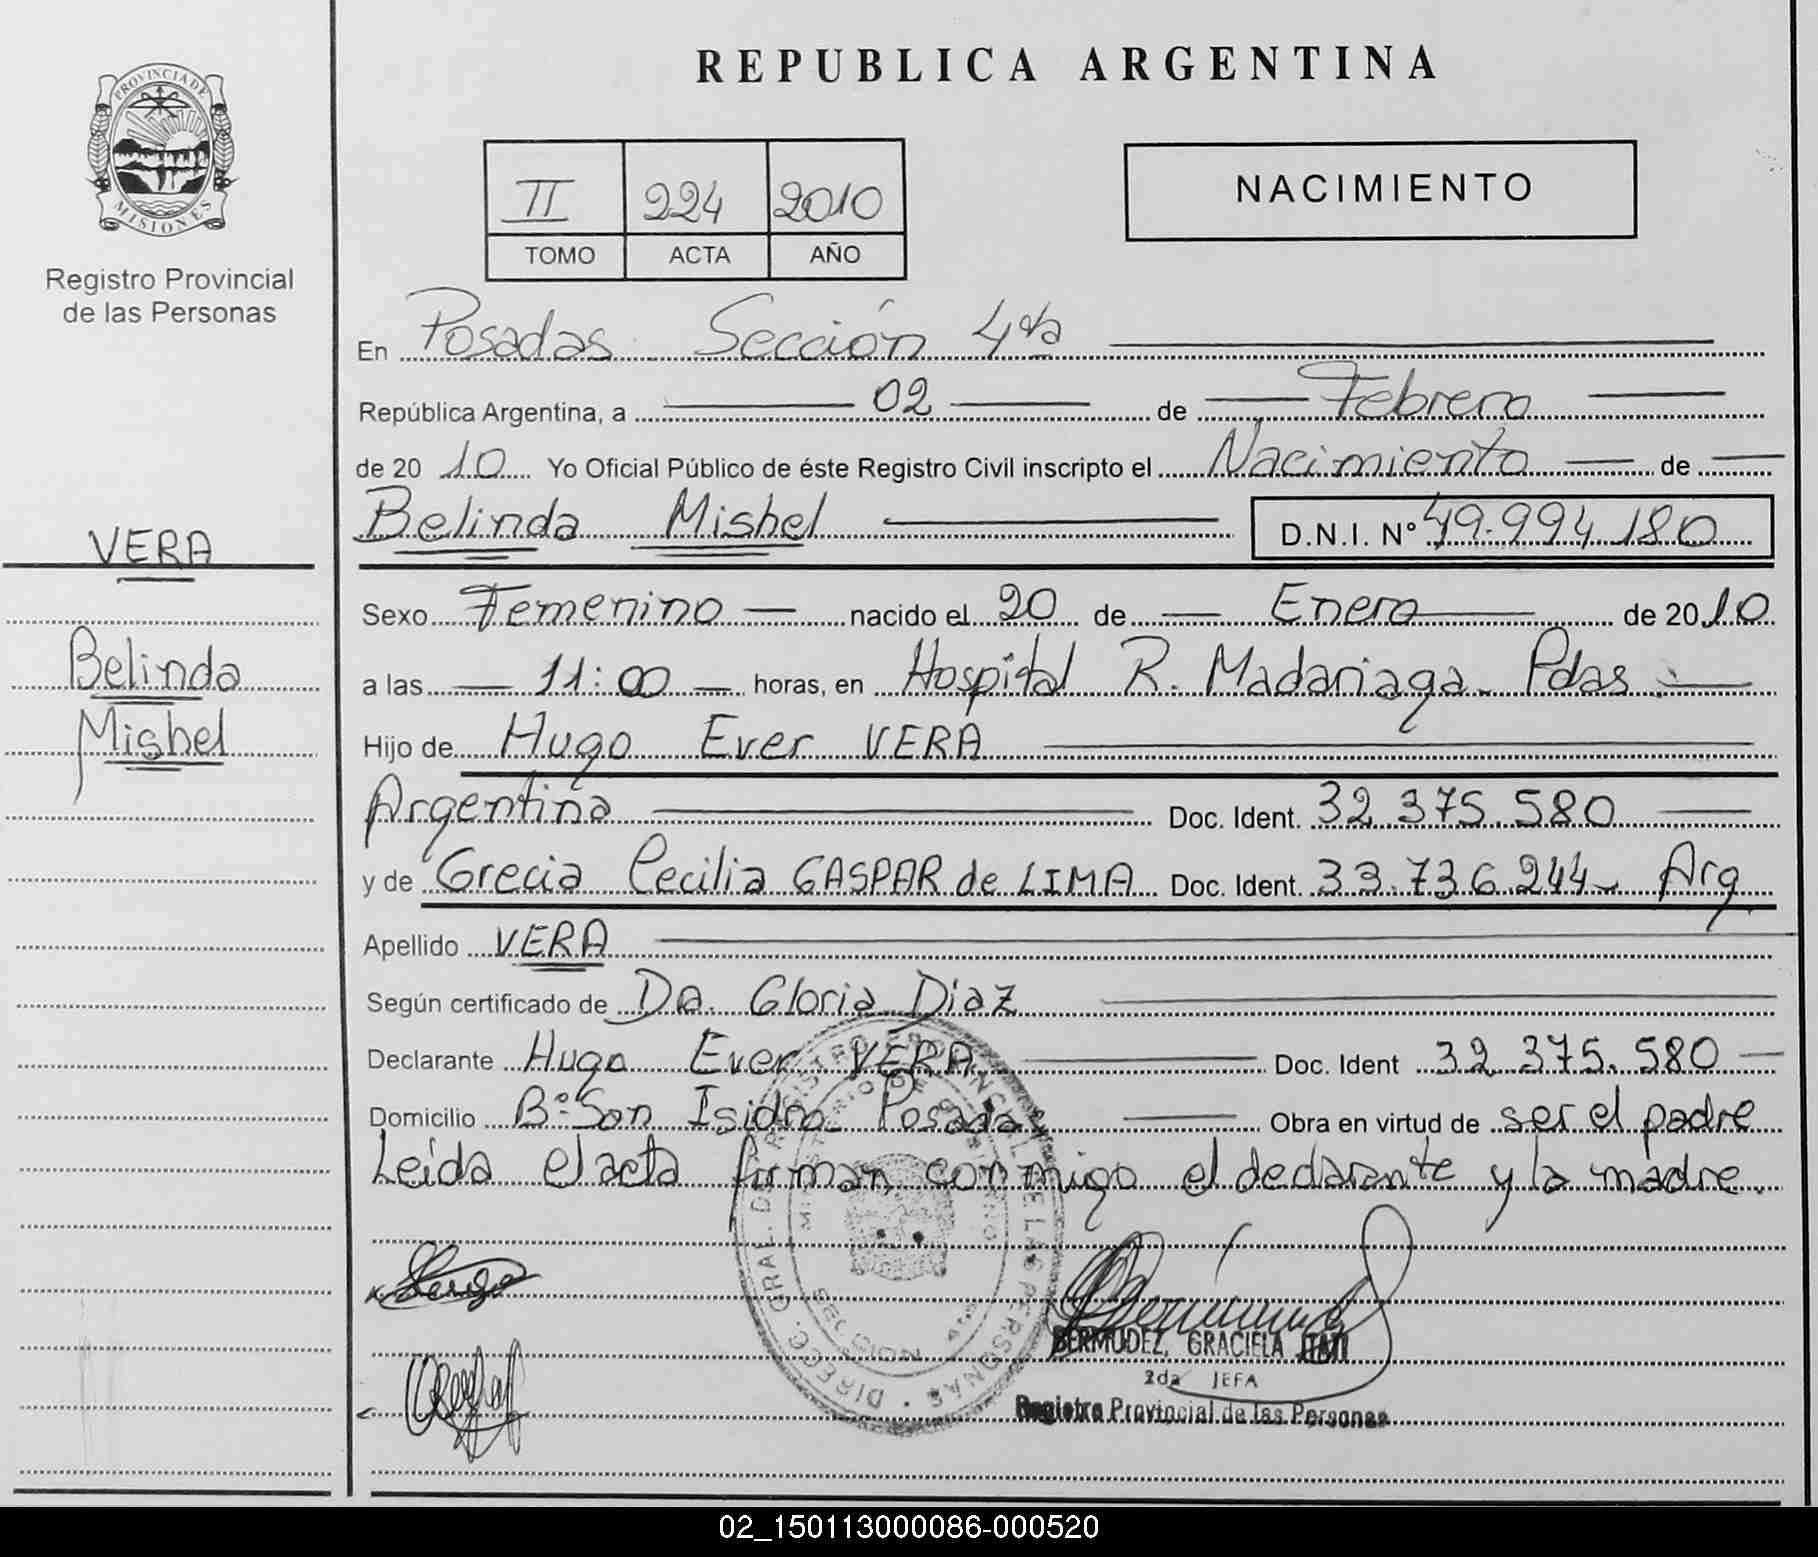 PROVINCIA DE
MISIONES
Registro Provincial
de las Personas
VERA
Belinda
Mishel
REPUBLICA ARGENTINA
II 224 2010
TOMO ACTA AÑO
NACIMIENTO
En Posadas Sección 4ta
República Argentina, a 02 de Febrero
de 20 10 Yo Oficial Público de éste Registro Civil inscripto el Nacimiento de
Belinda Mishel D.N.I. Nº 49.994.180
Sexo Femenino nacido el 20 de Enero de 20 10
a las 11:00 horas, en Hospital R. Madariaga. Pdas.
Hijo de Hugo Ever VERA
Argentina Doc. Ident. 32.375.580
y de Grecia Cecilia GASPAR de LIMA Doc. Ident. 33.736.244 Arg
Apellido VERA
Según certificado de Da. Gloria Diaz
Declarante Hugo Ever VERA Doc. Ident 32.375.580
Domicilio Bº San Isidro Posadas Obra en virtud de ser el padre
Leída el acta firman conmigo el declarante y la madre.
BERMUDEZ, GRACIELA ITATI
2da JEFA
Registro Provincial de las Personas
02_150113000086-000520